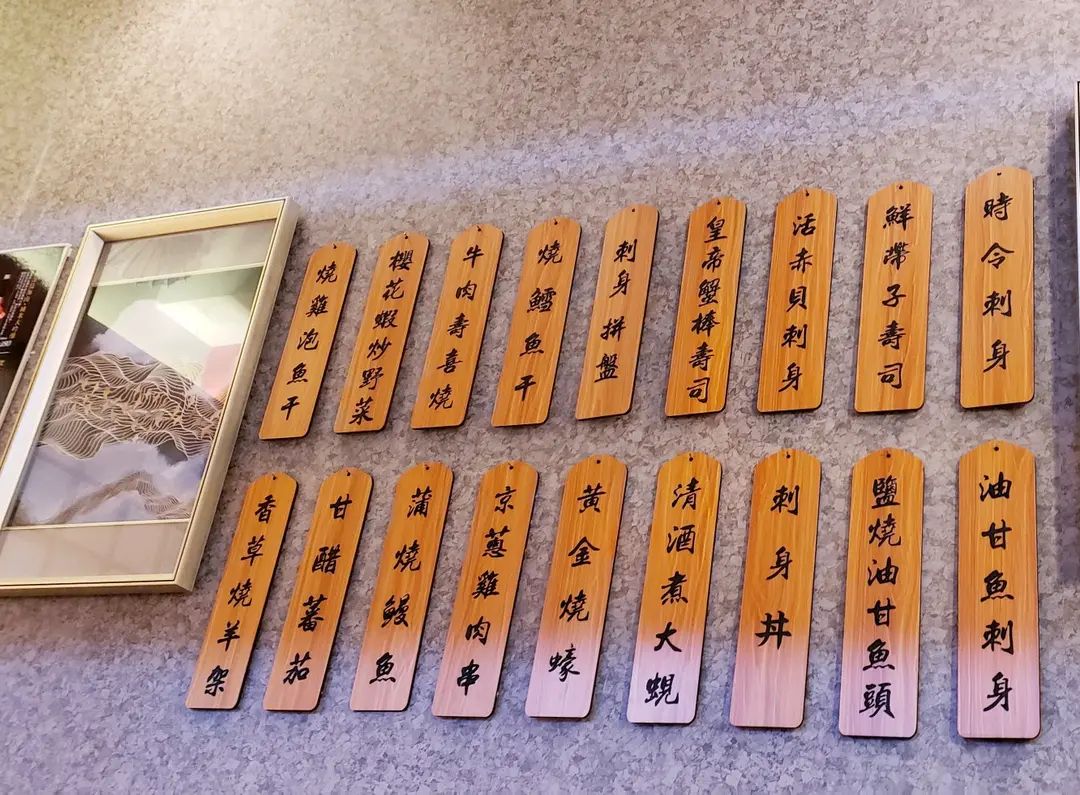 時令刺身
鮮滯子壽司
活赤貝刺身
皇帝蟹棒壽司
刺身拼盤
燒鱈魚干
牛肉壽喜燒
櫻花蝦炒野菜
燒雞泡魚干
油甘魚刺身
鹽燒油甘魚頭
刺身丼
清酒煮大蜆
黃金燒蠔
京蔥雞肉串
蒲燒鰻魚
甘醋蕃茄
香草燒羊架